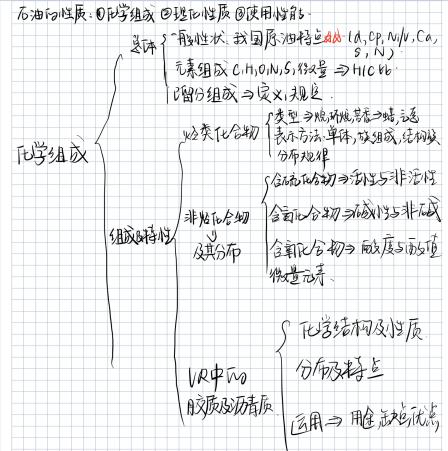 石油的性质:①化学组成 ②理化性质 ③使用性能.
总体
一般性状、我国原油特点 (d, Cp, N/V, Ca, S, N)
元素组成 C,H,O,N,S,微量 ⇒ H/C
馏分组成 ⇒ 定义,规定
化学组成
组成及特性
烃类化合物
类型 ⇒ 烷,环烷,芳香 ⇒ 蜡,
表示方法:单体,族组成,结构族
分布规律
非烃化合物
⇓
及其分布
含硫化合物 ⇒ 活性与非活性
含氮化合物 ⇒ 碱性与非碱
含氧化合物 ⇒ 酸度与酸值
微量元素.
VR中的
胶质及沥青质
化学结构及性质
分布及特点
运用 ⇒ 用途,缺点,优点